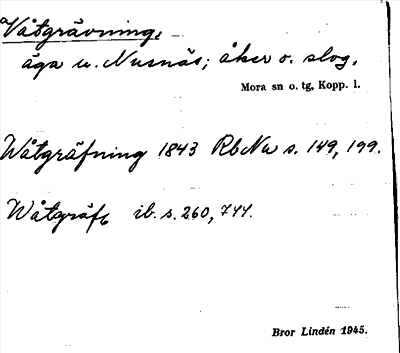 Våtgrävning,
äga u. Nusnäs; åker o. slog.
Mora sn o. tg, Kopp. l.
Wåtgräfning 1843 RbNu s. 149, 199.
Wåtgräf ib. s. 260, 744.
Bror Lindén 1945.